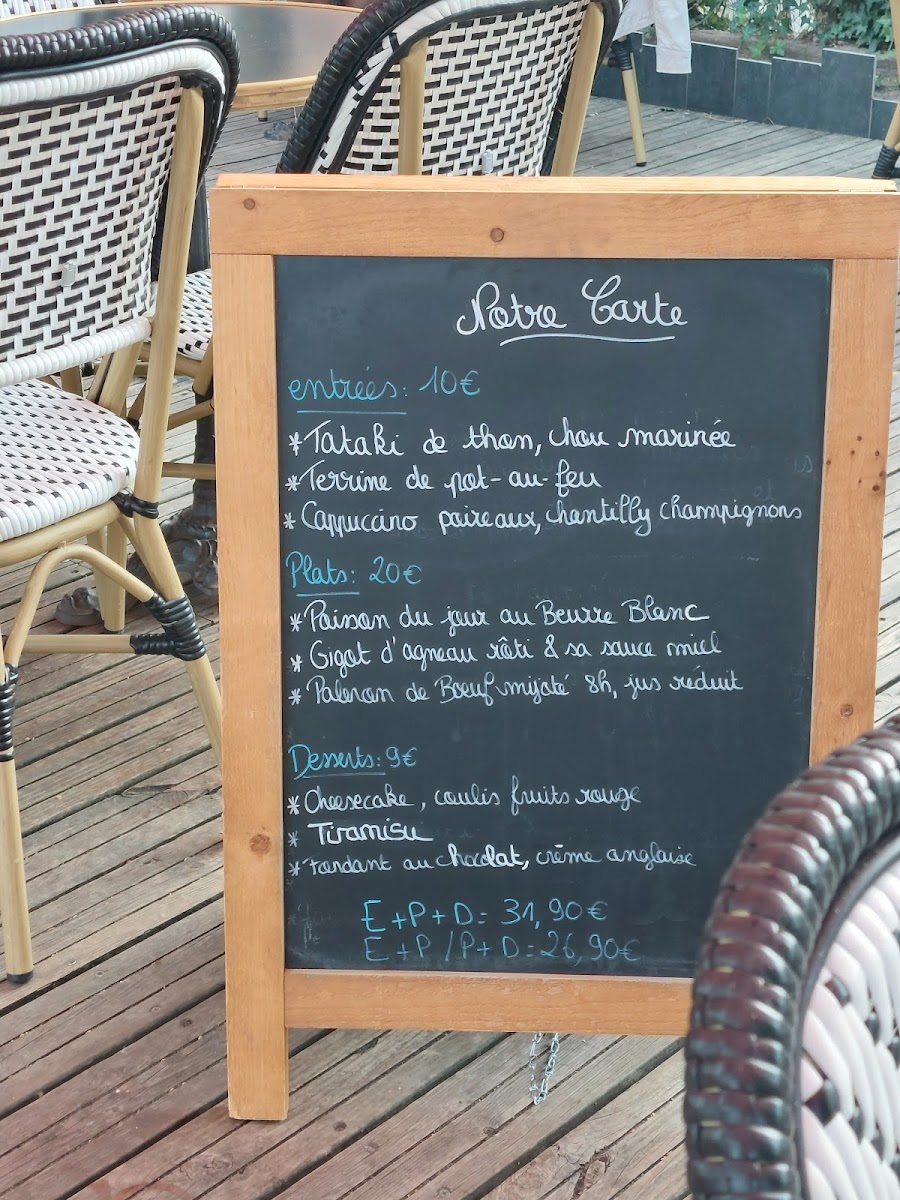 Notre Carte
entrées: 10€
*Tataki de thon, chou marinée
*Terrine de pot-au-feu
*Cappuccino poireaux, chantilly champignons
Plats: 20€
*Poisson du jour au Beurre Blanc
*Gigot d'agneau rôti & sa sauce miel
*Paleron de Boeuf mijoté 8h, jus réduit
Desserts: 9€
*Cheesecake, coulis fruits rouge
*Tiramisu
*Fondant au chocolat, crème anglaise
E+P+D= 31,90€
E+P/P+D=26,90€